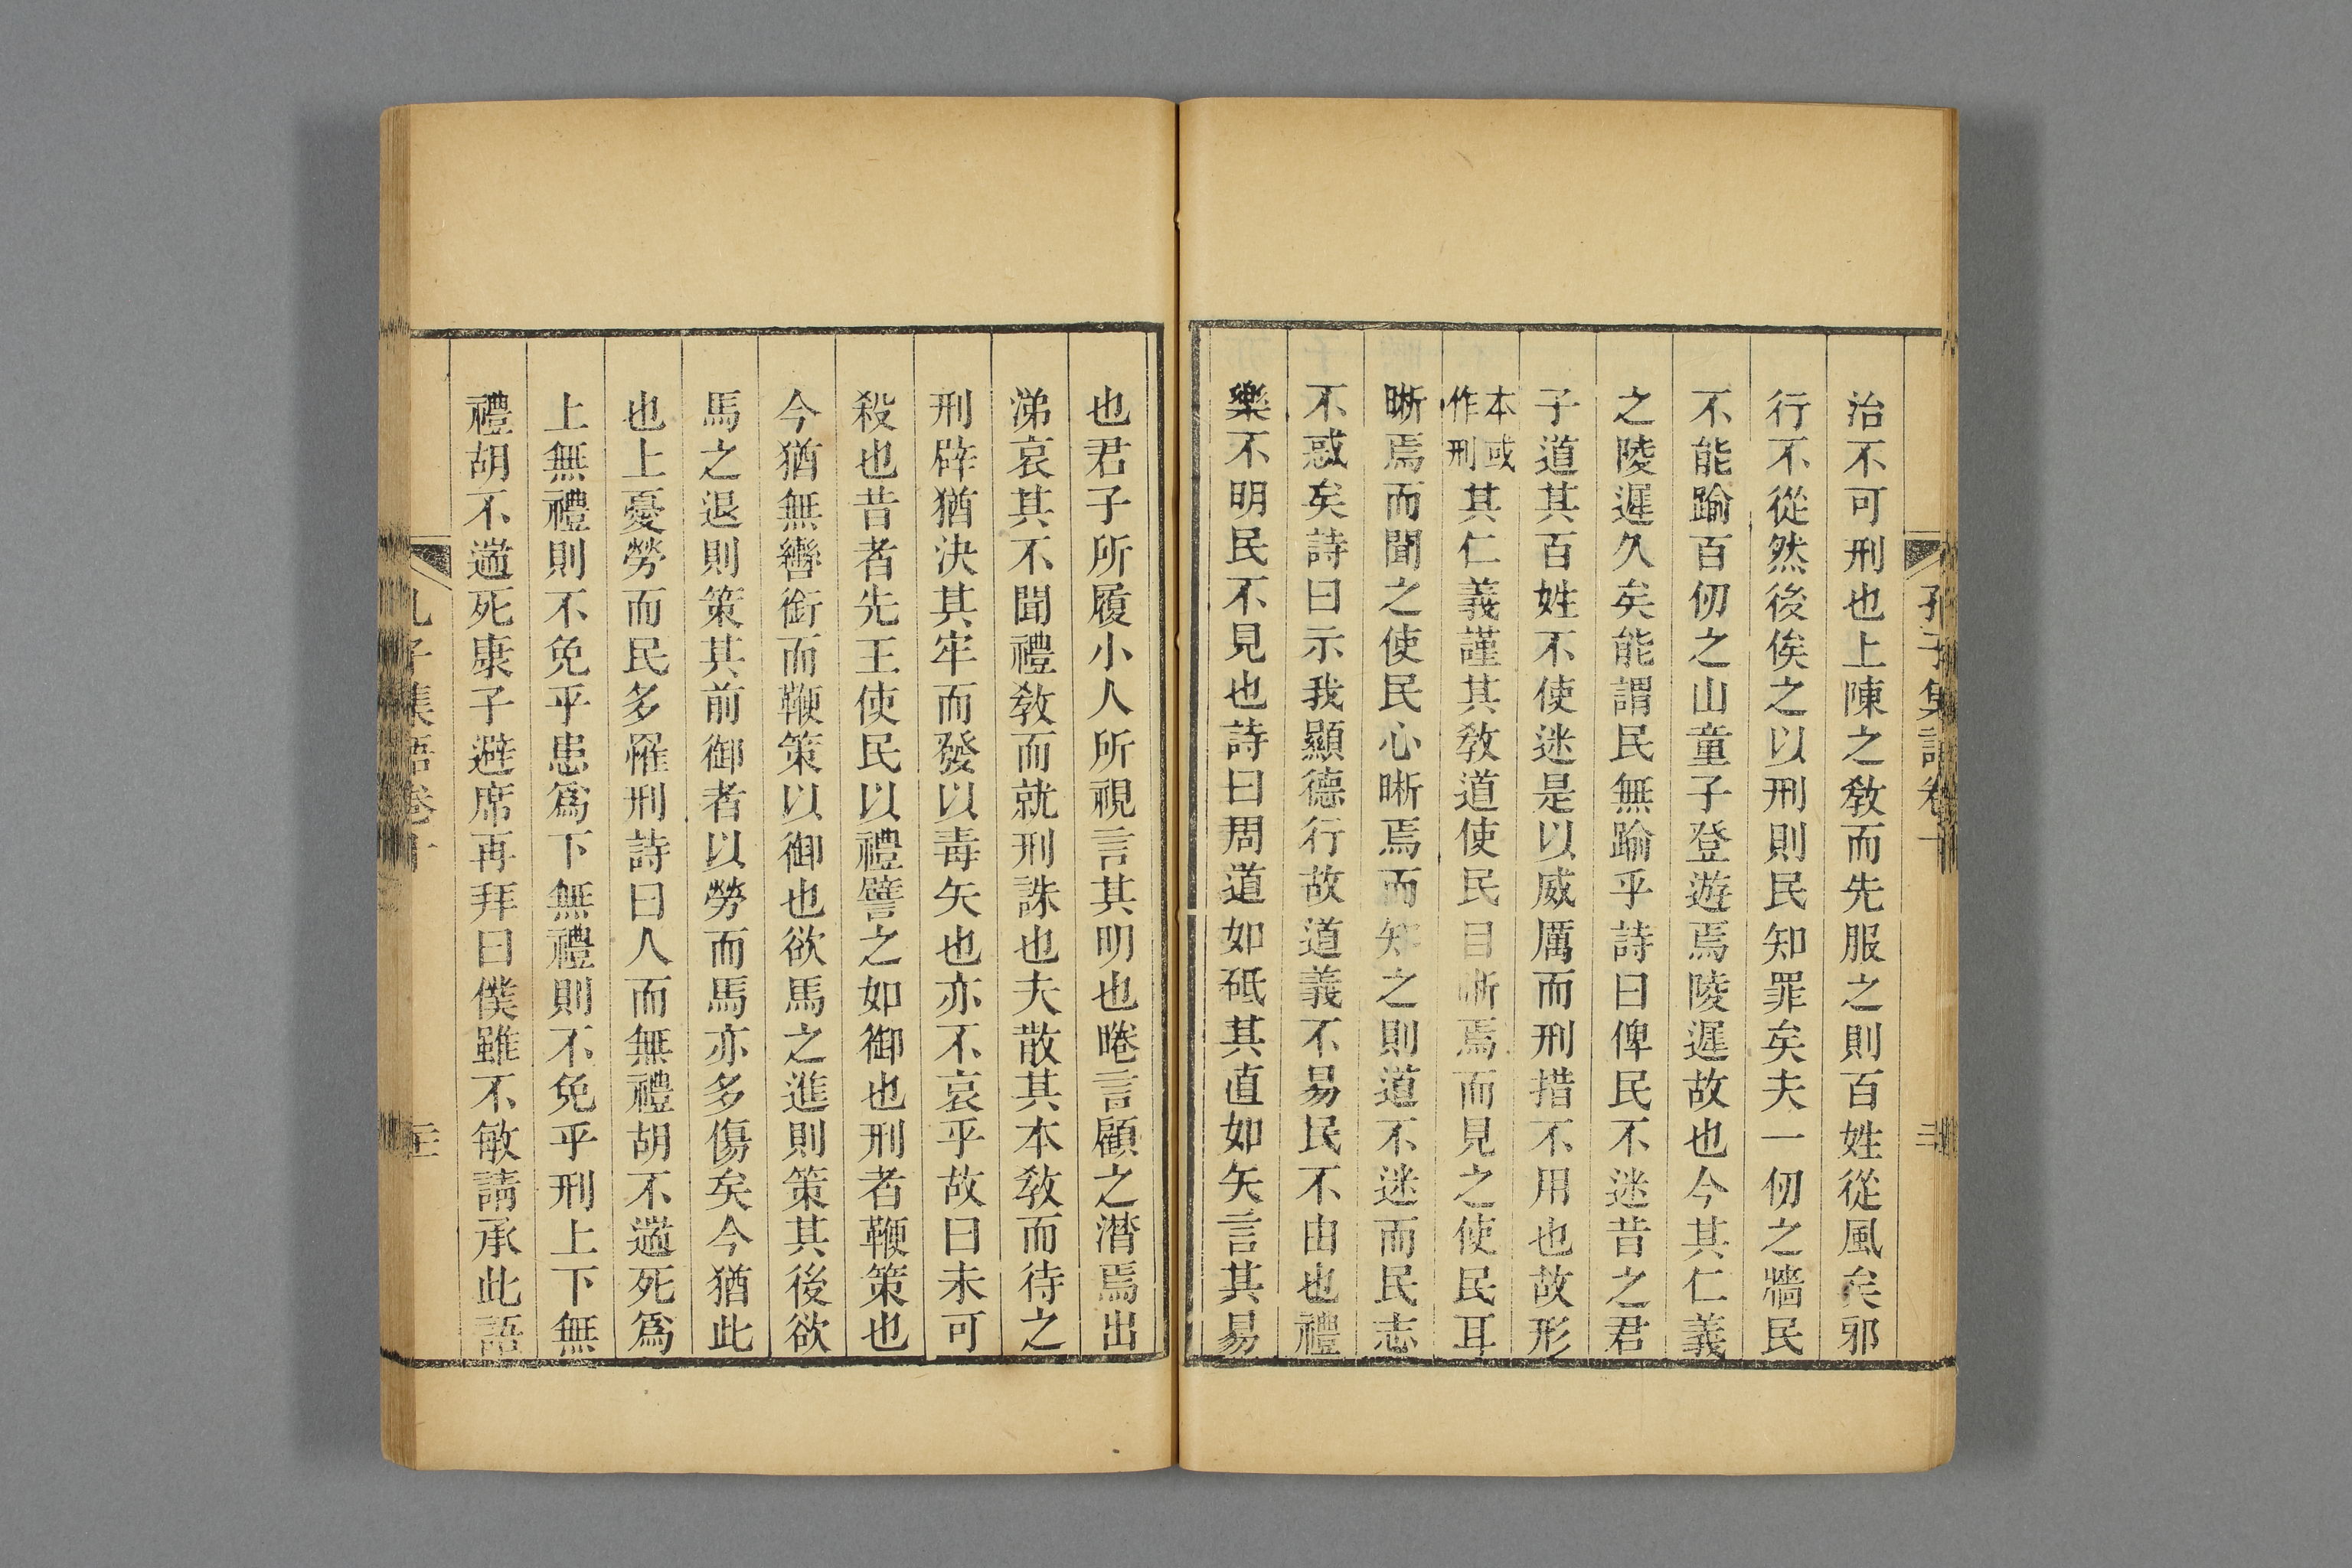 治不可刑也上陳之敎而先服之則百姓從風矣邪
行不從然後俟之以刑則民知罪矣夫一仞之牆民
不能踰百仞之山童子登遊焉陵遲故也今其仁義
之陵遲久矣能謂民無踰乎詩曰俾民不迷昔之君
子道其百姓不使迷是以威厲而刑措不用也故形
本或作刑其仁義謹其敎道使民目晣焉而見之使民耳
晣焉而聞之使民心晣焉而知之則道不迷而民志
不惑矣詩曰示我顯德行故道義不易民不由也禮
樂不明民不見也詩曰周道如砥其直如矢言其易
也君子所履小人所視言其明也睠言顧之潸焉出
涕哀其不聞禮敎而就刑誅也夫散其本敎而待之
刑辟猶決其牢而發以毒矢也亦不哀乎故曰未可
殺也昔者先王使民以禮譬之如御也刑者鞭策也
今猶無轡銜而鞭策以御也欲馬之進則策其後欲
馬之退則策其前御者以勞而馬亦多傷矣今猶此
也上憂勞而民多罹刑詩曰人而無禮胡不遄死爲
上無禮則不免乎患爲下無禮則不免乎刑上下無
禮胡不遄死康子避席再拜曰僕雖不敏請承此語
子集語卷十